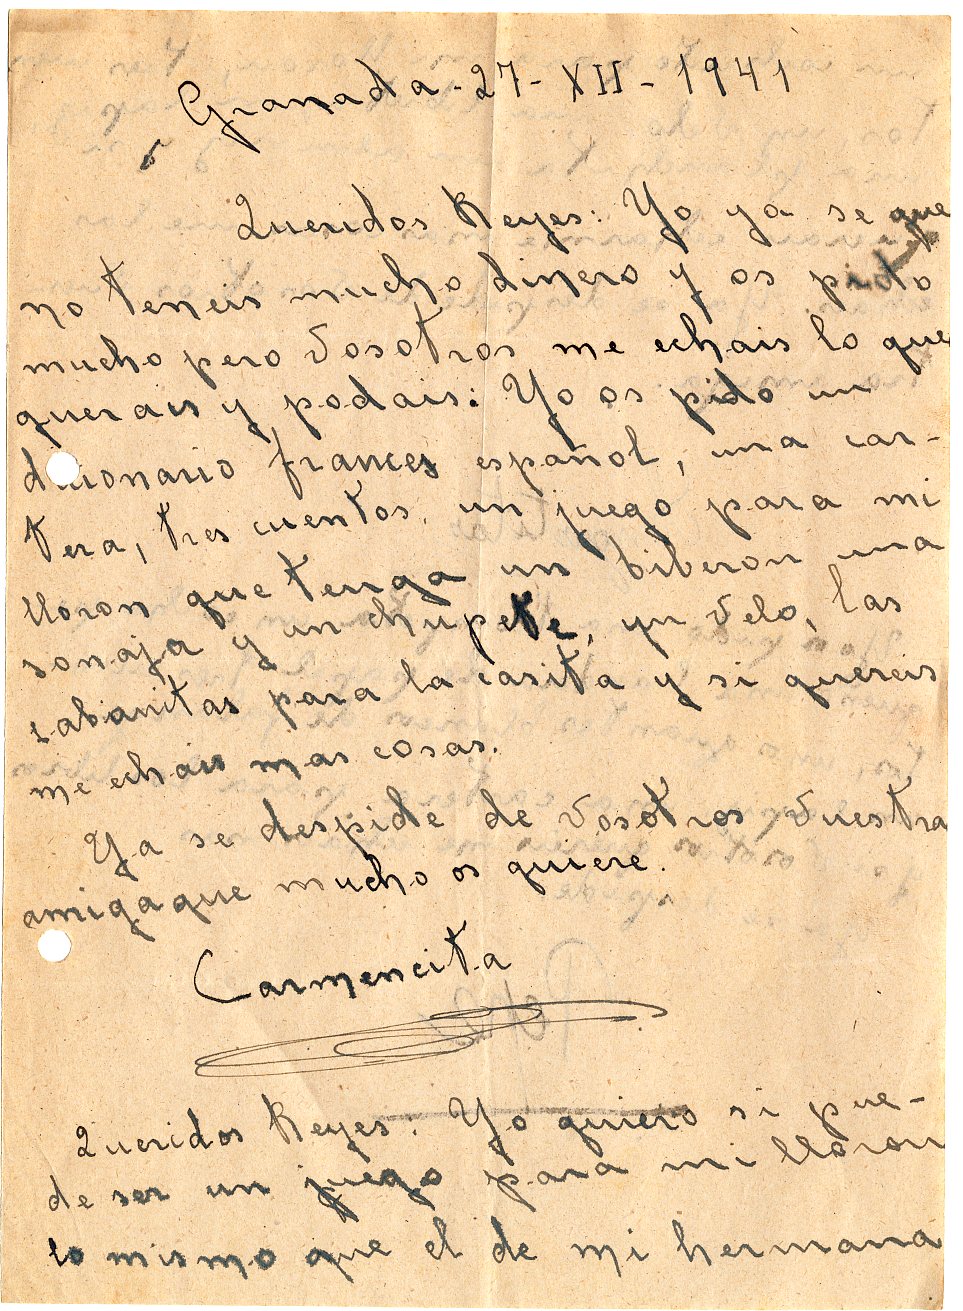 Granada - 27 - XII - 1941
Queridos Reyes: Yo ya se que
no teneis mucho dinero y os pido
mucho pero vosotros me echais lo que
querais y podais: Yo os pido un
dicionario frances español, una car-
tera, tres cuentos, un juego para mi
lloron que tenga un biberon una
sonaja y un chupete, un velo, las
sabanitas para la casita y si quereis
me echais mas cosas.
Ya se despide de vosotros vuestra
amiga que mucho os quiere.
Carmencita
Queridos Reyes: Yo quiero si pue-
de ser un juego para mi lloron
lo mismo que el de mi hermana